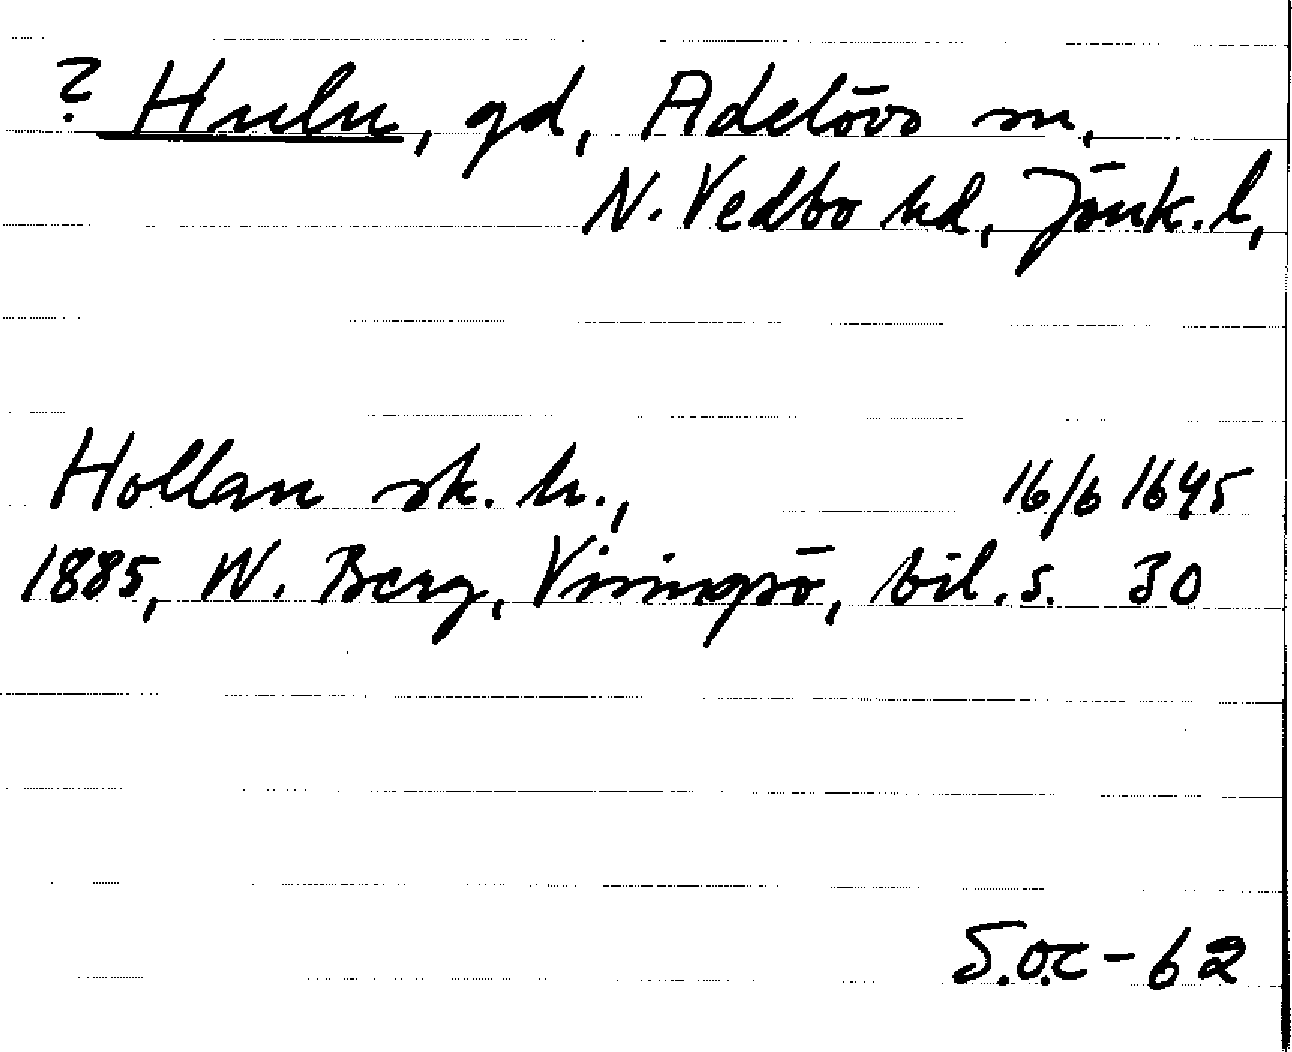 ? Hulu, gd, Adelövs sn,
N. Vedbo hd, Jönk. l,
Hollan sk. h., 16/6 1645
1885, W. Berg, Visingsö, bil. s. 30
S.O.C-62